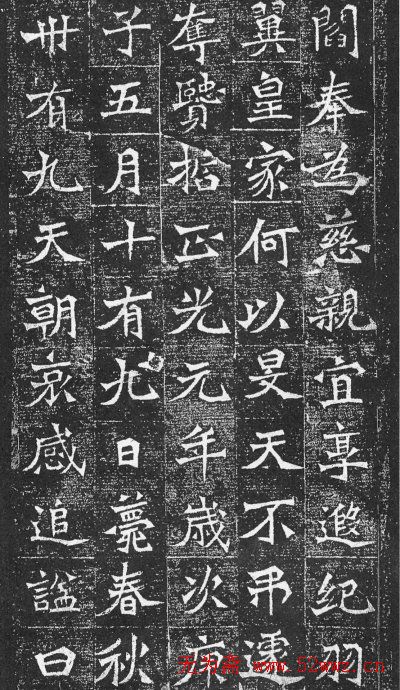 閻奉為慈親宜享遐紀羽
翼皇家何以旻天不弔運
奪賢哲正光元年歲次庚
子五月十有九日薨春秋
卅有九天朝哀感追謚曰